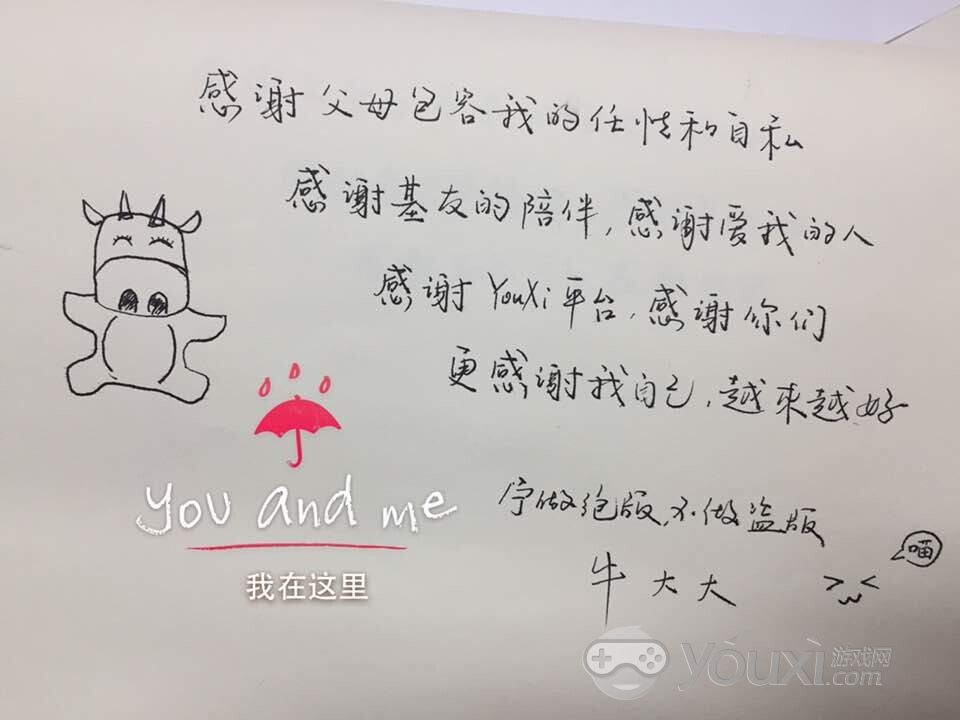 感谢父母包容我的任性和自私
感谢基友的陪伴,感谢爱我的人
感谢 YouXi 平台,感谢你们
更感谢我自己,越来越好
you and me
我在这里
宁做绝版,不做盗版
牛大大
喵
youxi 游戏网
.com